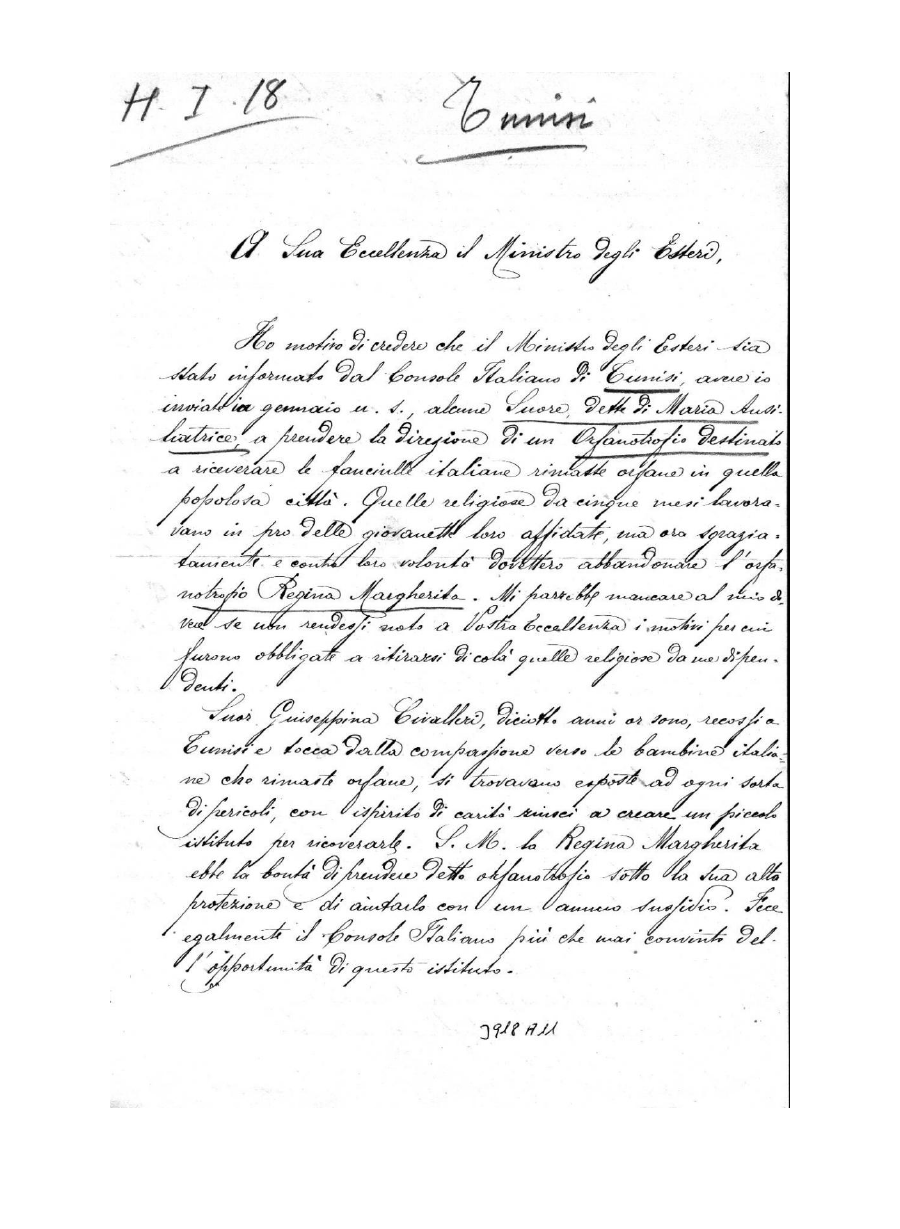 H. I. 18
Tunisi
A Sua Eccellenza il Ministro degli Esteri,
Ho motivo di credere che il Ministro degli Esteri sia
stato informato dal Console Italiano di Tunisi, avere io
inviato in gennaio u. s., alcune Suore, dette di Maria Ausi-
liatrice, a prendere la direzione di un Orfanotrofio destinato
a ricoverare le fanciulle italiane rimaste orfane in quella
popolosa città. Quelle religiose da cinque mesi lavora-
vano in pro delle giovanette loro affidate, ma ora sgrazia-
tamente e contro loro volontà dovettero abbandonare l'orfa-
notrofio Regina Margherita. Mi parrebbe mancare al mio do-
vere se non rendessi noto a Vostra Eccellenza i motivi per cui
furono obbligate a ritirarsi di colà quelle religiose da me dipen-
denti.
Suor Guiseppina Civalleri, diciotto anni or sono, recossi a
Tunisi e tocca dalla compassione verso le bambine italia-
ne che rimaste orfane, si trovavano esposte ad ogni sorta
di pericoli, con ispirito di carità riuscì a creare un piccolo
istituto per ricoverarle. S. M. la Regina Margherita
ebbe la bontà di prendere detto orfanotrofio sotto la sua alta
protezione e di aiutarlo con un annuo sussidio. Fece
egalmente il Console Italiano più che mai convinto del-
l'opportunità di questo istituto.
3918 A11